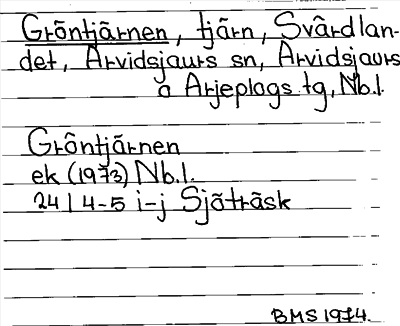 Gröntjärnen, tjärn, Svärdlan-
det, Arvidsjaurs sn, Arvidsjaurs
o Arjeplogs tg, Nb.l.
Gröntjärnen
ek (1973) Nb.l.
24 I 4-5 i-j Sjöträsk
BMS 1974.